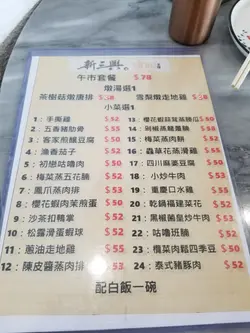 新三興
午市套餐 $78
燉湯選1
茶樹菇燉唐排 $38
雪梨燉走地雞 $38
小菜選1
1：手撕雞 $52
2：五香豬肋骨 $50
3：客家煎釀豆腐 $50
4：鹹香茄子 $50
5：初戀咕嚕肉 $50
6：梅菜五花腩 $52
7：鳳爪蒸肉排 $52
8：櫻花蝦肉末煎蛋 $50
9：沙茶扣鴨掌 $52
10：松露滑蛋蝦球 $52
11：蔥油走地雞 $55
12：陳皮醬蒸肉排 $53
13：櫻花蝦蒜茸蒸勝瓜 $50
14：剁椒蒸龍躉腩 $50
15：梅菜蒸肉餅 $50
16：蟲草花蒸滑雞 $50
17：四川麻婆豆腐 $50
18：小炒牛肉 $52
19：重慶口水雞 $52
20：乾鍋福建菜花 $52
21：黑椒薯皇炒牛肉 $53
22：咕嚕班腩 $52
23：欖菜肉鬆四季豆 $50
24：泰式豬頸肉 $52
配白飯一碗